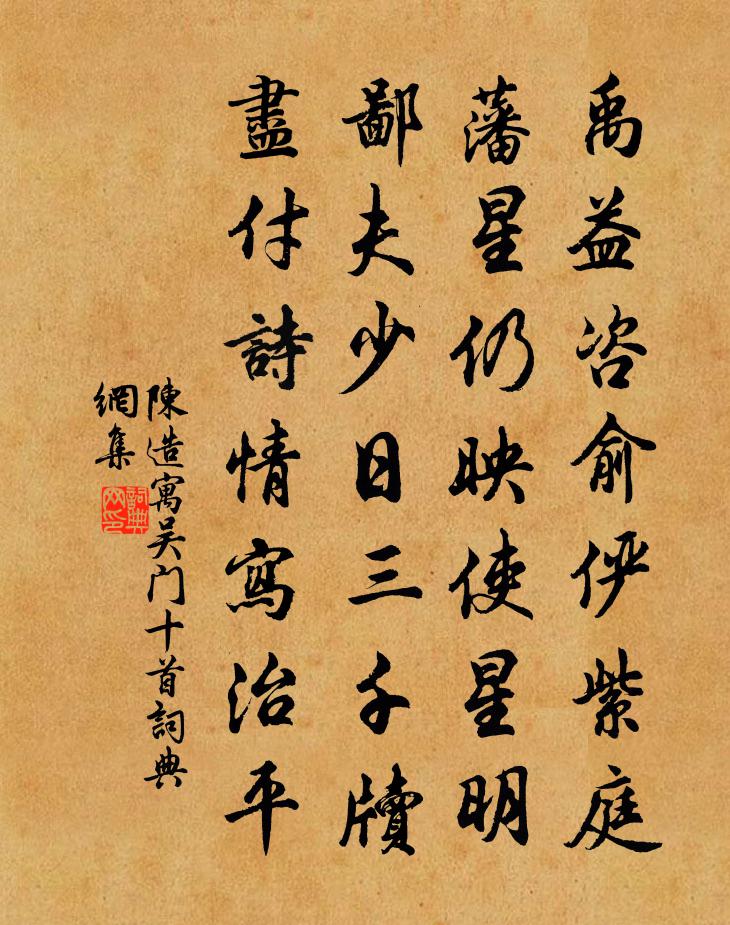 禹益咨俞侔紫庭
藩星仍映使星明
鄙夫少日三千牘
盡付詩情寫治平
陳造寓吴门十首詞典
網集
詞典
网印